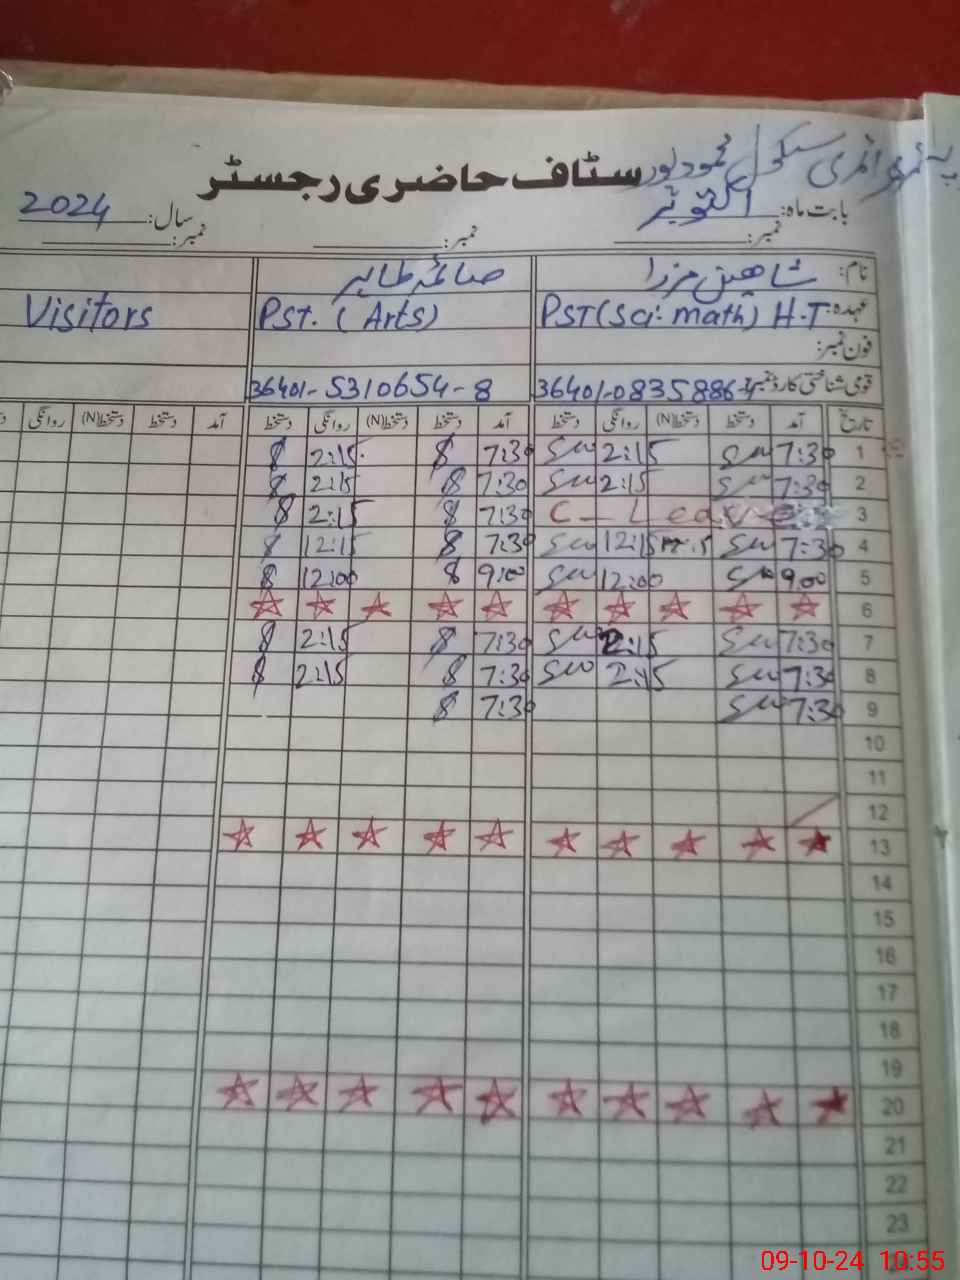 پرائمری سکول محمود پور
سٹاف حاضری رجسٹر
بابت ماہ: اکتوبر سال: 2024
نمبر: نمبر: نمبر:
نام: شاھین مرزا صائمہ طاہر
عہدہ: PST (Sci. math) H.T PST. (Arts) Visitors
فون نمبر:
قومی شناختی کارڈ نمبر 36401-5310654-8
تاریخ آمد دستخط دستخط(N) روانگی دستخط آمد دستخط دستخط(N) روانگی دستخط آمد دستخط دستخط(N) روانگی
1 7:30 2:15 7:30 2:15
2 7:30 2:15 7:30 2:15
3 C-Leave 7:30 2:15
4 7:30 12:15 7:30 12:15
5 9:00 12:00 9:00 12:00
6
7 7:30 2:15 7:30 2:15
8 7:30 2:15 7:30 2:15
9 7:30 7:30
10
11
12
13
14
15
16
17
18
19
20
21
22
23
09-10-24 10:55